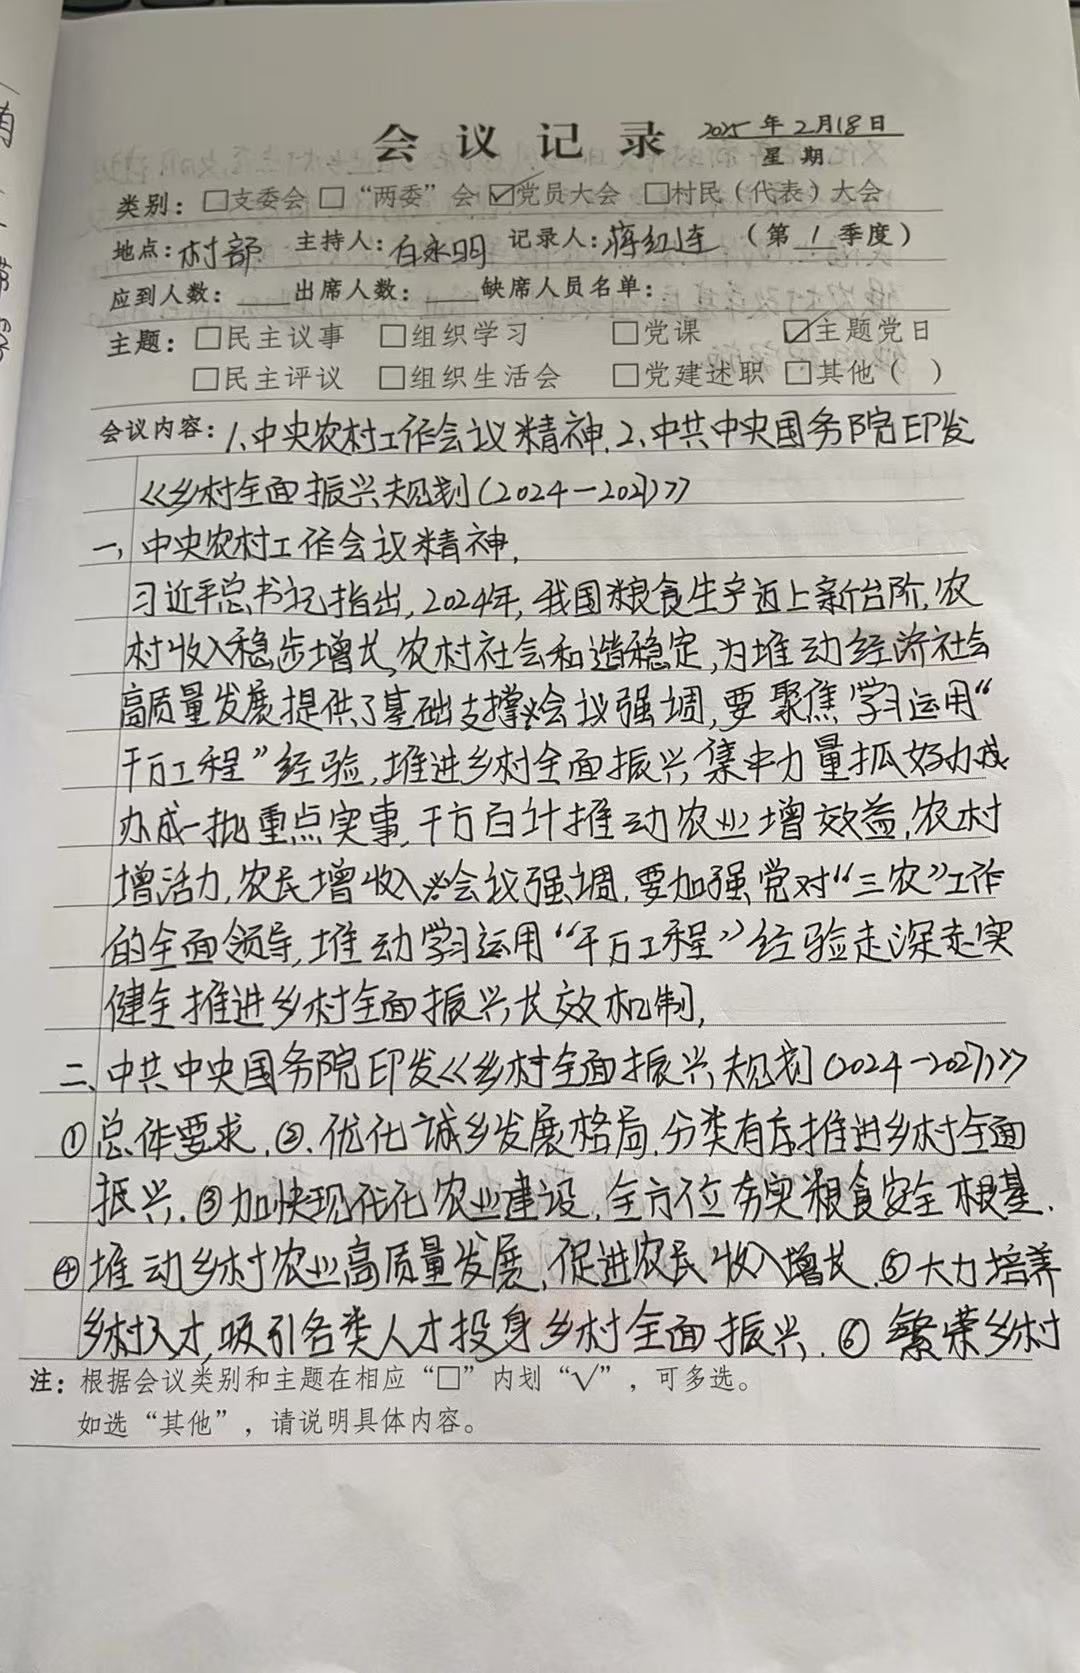 会议记录 2025年2月18日
星期
类别：□支委会 □“两委”会 ☑党员大会 □村民（代表）大会
地点：村部 主持人：白永明 记录人：蒋红连 （第1季度）
应到人数：____出席人数：____缺席人员名单：
主题：□民主议事 □组织学习 □党课 ☑主题党日
□民主评议 □组织生活会 □党建述职 □其他（ ）
会议内容：1、中央农村工作会议精神.2、中共中央国务院印发
《乡村全面振兴规划(2024-202)》
一、中央农村工作会议精神.
习近平总书记指出,2024年,我国粮食生产迈上新台阶,农
村收入稳步增长,农村社会和谐稳定,为堆动经济社会
高质量发展提供了基础支撑.会议强调,要聚焦学习运用“
千万工程”经验,堆进乡村全面振兴,集中力量抓好办成
办成一批重点实事,千方百计推动农业增效益,农村
增活力,农民增收入.会议强调,要加强党对“三农”工作
的全面领导,堆动学习运用“千万工程”经验走深走实
健全推进乡村全面振兴长效机制,
二、中共中央国务院印发《乡村全面振兴规划(2024-2027)》
①总体要求.②.优化城乡发展格局,分类有序推进乡村全面
振兴.③加快现代化农业建设,全方位夯实粮食安全根基.
④堆动乡村农业高质量发展,促进农民收入增长.⑤大力培养
乡村人才,吸引各类人才投身乡村全面振兴.⑥繁荣乡村
注：根据会议类别和主题在相应“□”内划“√”，可多选。
如选“其他”，请说明具体内容。